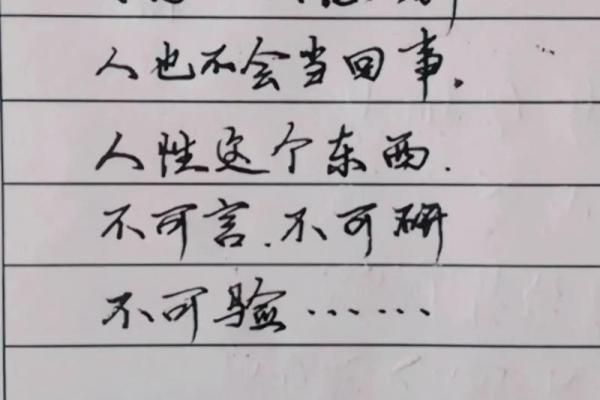 人也不会当回事.
人性这个东西.
不可言.不可研
不可验……